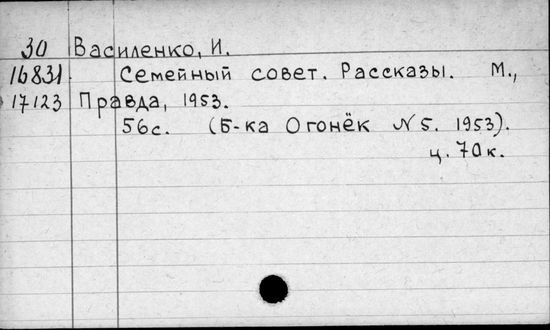 30 Василенко, И.
16831 Семейный совет. Рассказы. М.,
17123 Правда, 1953.
56с. (Б-ка Огонёк N 5. 1953).
ц. 70к.